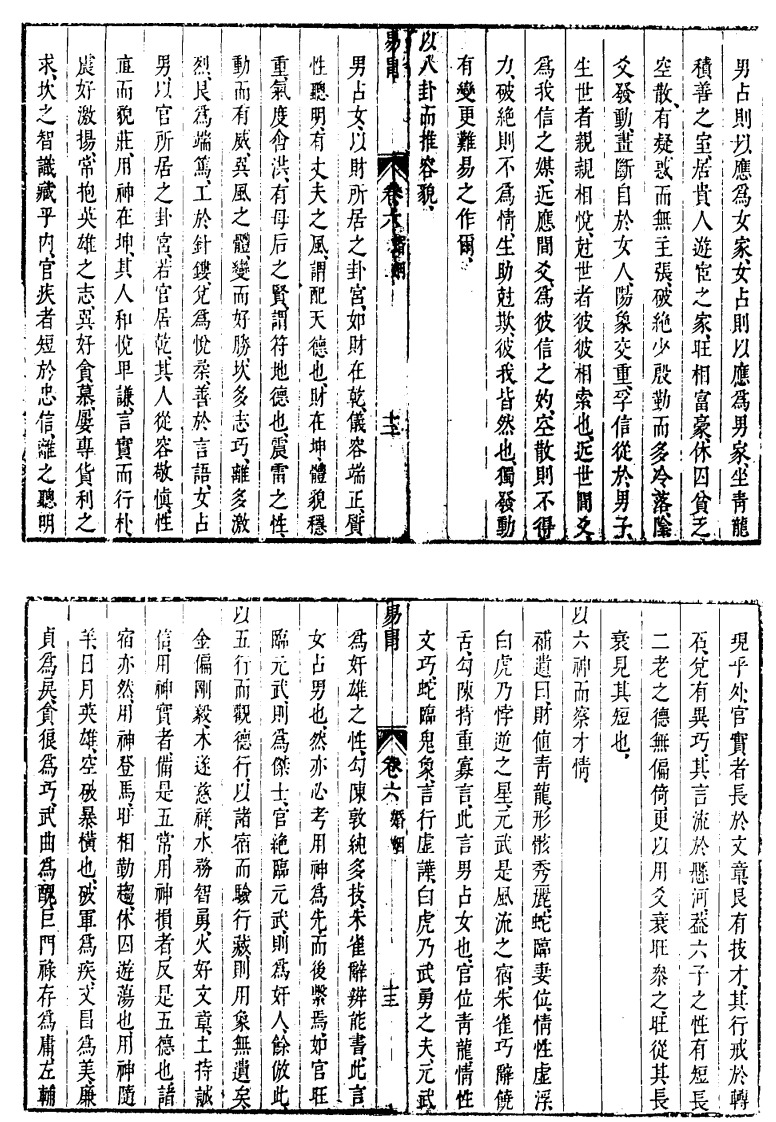 男占則以應爲女家女占則以應爲男家坐靑龍
積善之室居貴人遊宦之家旺相富豪休囚貧乏
空散有疑惑而無主張破絶少殷勤而多冷落陰
爻發動晝斷自於女人陽象交重孚信從於男子
生世者親親相悅尅世者彼彼相索也近世間爻
爲我信之媒近應間爻爲彼信之妁空散則不得
力破絶則不爲情生助尅欺彼我皆然也獨發動
有變更難易之作爾
以八卦而推容貌
易冐 卷六 婚姻 十二
男占女以財所居之卦宮如財在乾儀容端正質
性聰明有丈夫之風謂配天德也財在坤體貌穩
重氣度含洪有母后之賢謂符地德也震雷之性
動而有威巽風之體變而好勝坎多志巧離多激
烈艮爲端篤工於針鏤兌爲悅柔善於言語女占
男以官所居之卦宮若官居乾其人從容敬愼性
直而貌莊用神在坤其人和悅卑謙言實而行朴
震好激揚常抱英雄之志巽好貪慕屢專貨利之
求坎之智識藏乎內官疾者短於忠信離之聰明
現乎外官實者長於文章艮有技才其行戒於轉
石兌有異巧其言流於懸河蓋六子之性有短長
二老之德無偏倚更以用爻衰旺叅之旺從其長
衰見其短也
以六神而察才情
補遺曰財値靑龍形骸秀麗蛇臨妻位情性虛浮
白虎乃悖逆之星元武是風流之宿朱雀巧辭饒
舌勾陳持重寡言此言男占女也官位靑龍情性
文巧蛇臨鬼象言行虛譁白虎乃武勇之夫元武
易冐 卷六 婚姻 十三
爲奸雄之性勾陳敦純多技朱雀辭辨能書此言
女占男也然亦必考用神爲先而後繫焉如官旺
臨元武則爲傑士官絶臨元武則爲奸人餘倣此
以五行而觀德行以諸宿而驗行藏則用象無遺矣
金偏剛毅木遂慈祥水務智勇火好文章土持誠
信用神實者備是五常用神損者反是五德也諸
宿亦然用神登馬旺相勤趨休囚遊蕩也用神隨
羊日月英雄空破暴橫也破軍爲疾文昌爲美廉
貞爲戾貪狼爲巧武曲爲醜巨門祿存爲庸左輔